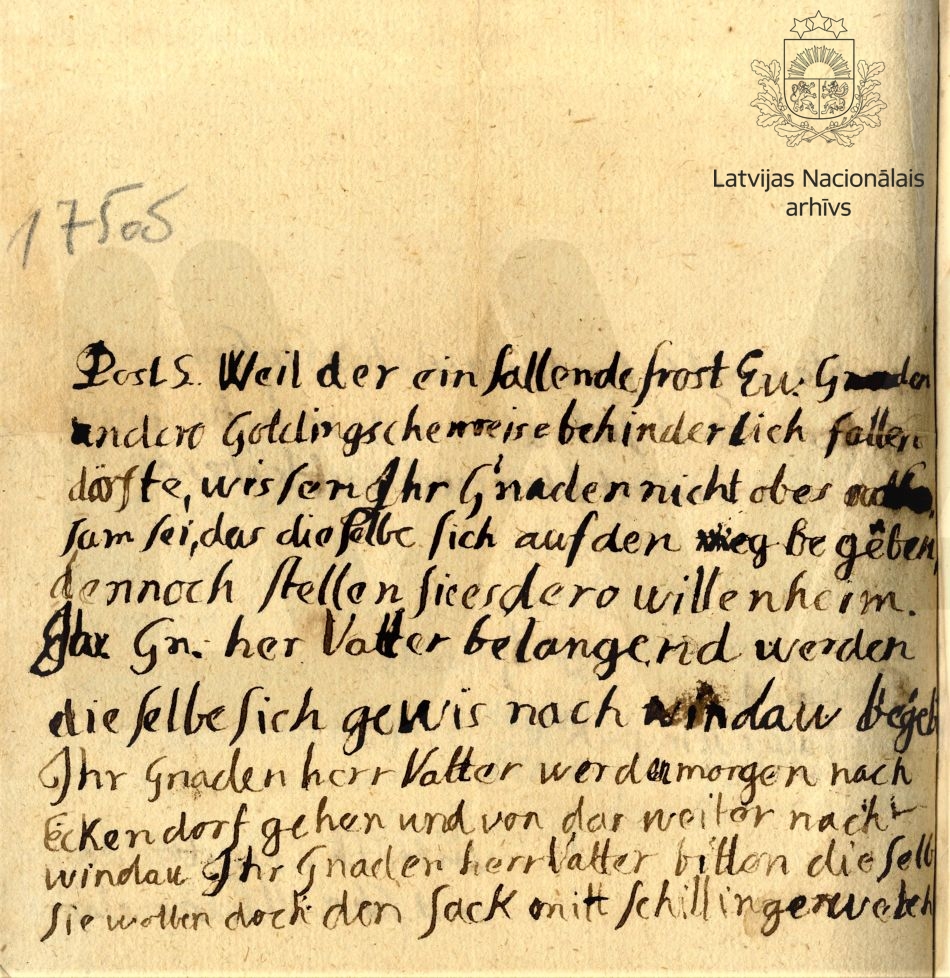 Latvijas Nacionālais
arhīvs
17505
Post S. Weil der ein fallende frost Ew: Gnaden
andero Goldingsche reise behinderlich fallen
dörfte, wissen Ihr Gnaden nicht ob es
sam sei, das dieselbe sich auf den weg begeben,
dennoch stellen sie es dero willen heim.
Ihr Gn. her Vatter belangend werden
dieselbe sich gewis nach windaw begeb
Ihr Gnaden herr Vatter werden morgen nach
Eckendorf gehen und von dar weiter nach
windau Ihr Gnaden herr Vatter bitten die selb
sie wollen doch den sack mitt schillingen